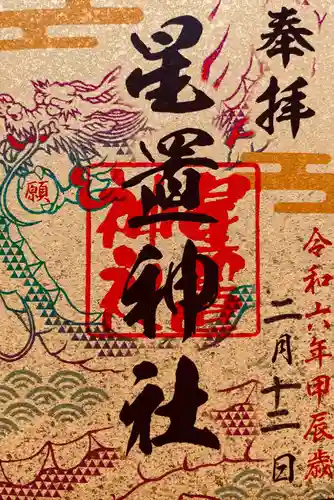 奉拝
令和六年甲辰歳
二月十二日
星置神社
星置神社
願